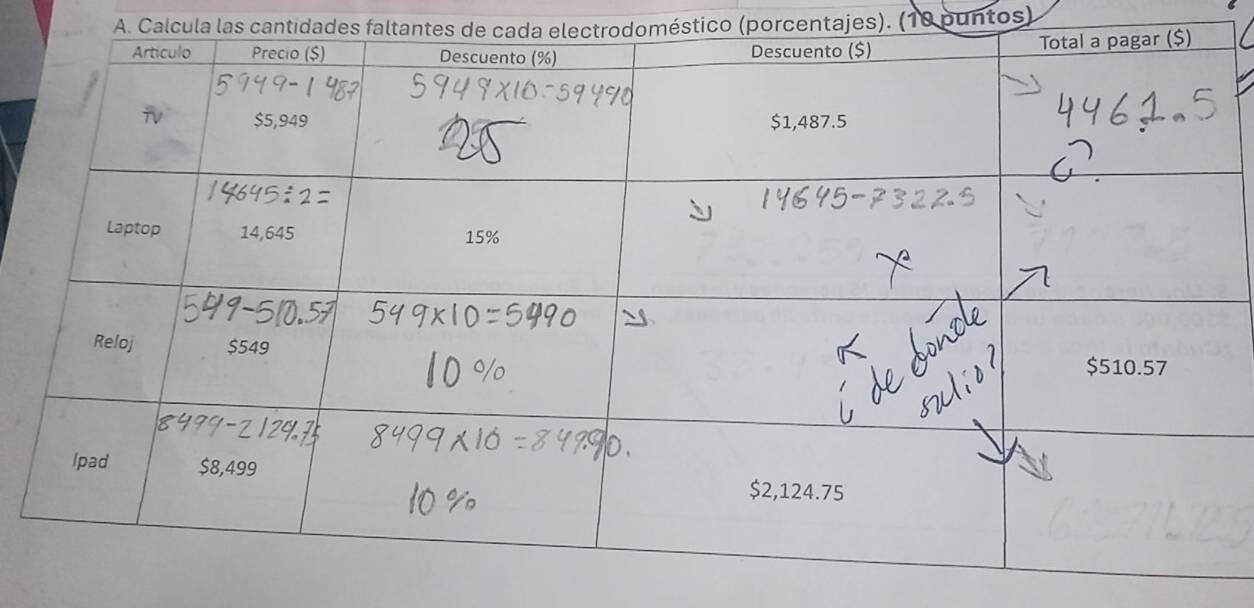 A. Calcula las cantidades faltantes de cada electrodoméstico (porcentajes). (10 puntos)
Artículo Precio ($) Descuento (%) Descuento ($) Total a pagar ($)
5949-1487 5949x10=59490
TV $5,949 25 $1,487.5 4461.5
¿?
14645÷2= 14645-7322.5
Laptop 14,645 15%
549-510.57 549x10=5490
¿de dónde
salió?
Reloj $549 10% $510.57
8499-2129.75 8499x10=84990.
Ipad $8,499 10% $2,124.75